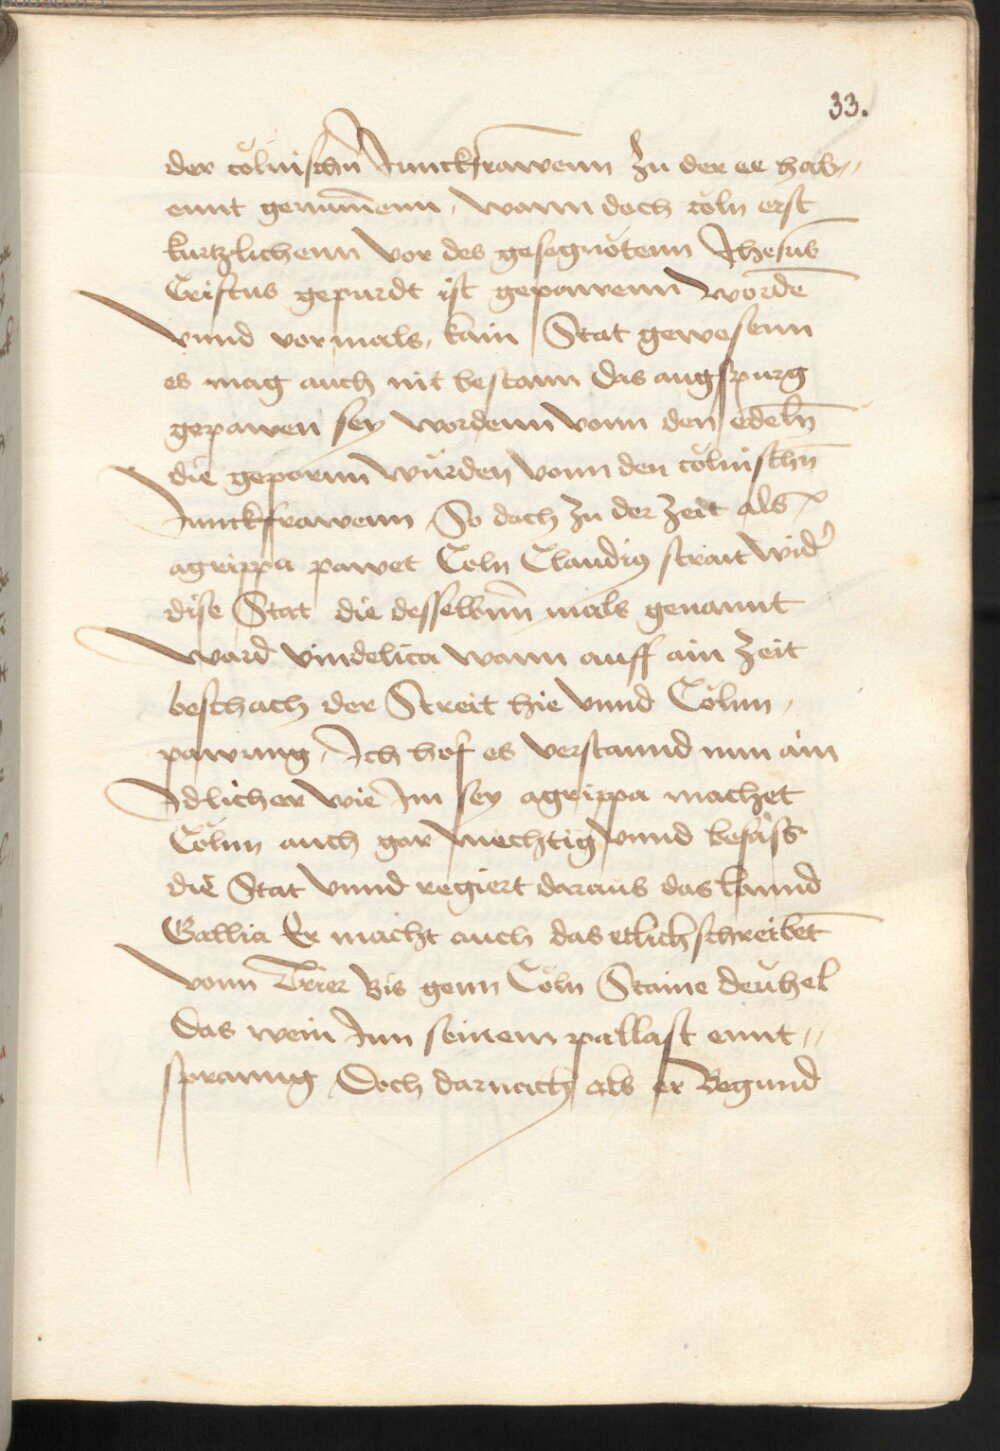 33.
der cölnischn̄ Junckfrawenn zu der ee hab„
ennt genum̄enn, wann doch cöln erst
kurtzlichenn vor des gesegnotenn Jhesus
Cristus gepurdt ist gepawenn wordē
vnnd vormals, kain Stat gewesenn
es mag auch nit bestann das augspurg
gepawen sey wordenn vonn den edelñ
die gepornn wurden vonn den cölnischn̄
Junckfrawenn So doch zu der zeit als
agrippa pawet Coln Claudiꝰ strait wid̕
dise Stat die desselbnn̄ mals genannt
ward vindelica wann auff ain zeit
beschach der Streit hie vnnd Cölnn,
pawung, Ich hof es verstannd nun ain
Idlicher wie Im sey agrippa machet
Cölnn auch gar mechtig vnnd besass
die Stat vnnd regiert daraus das lannd
Gallia Er macht auch das etlich schreibet̄
vonn Trier bis genn Cöln Staine deuhel
Das wein Inn seinem pallast ennt„
spranng Doch darnach als er Begund